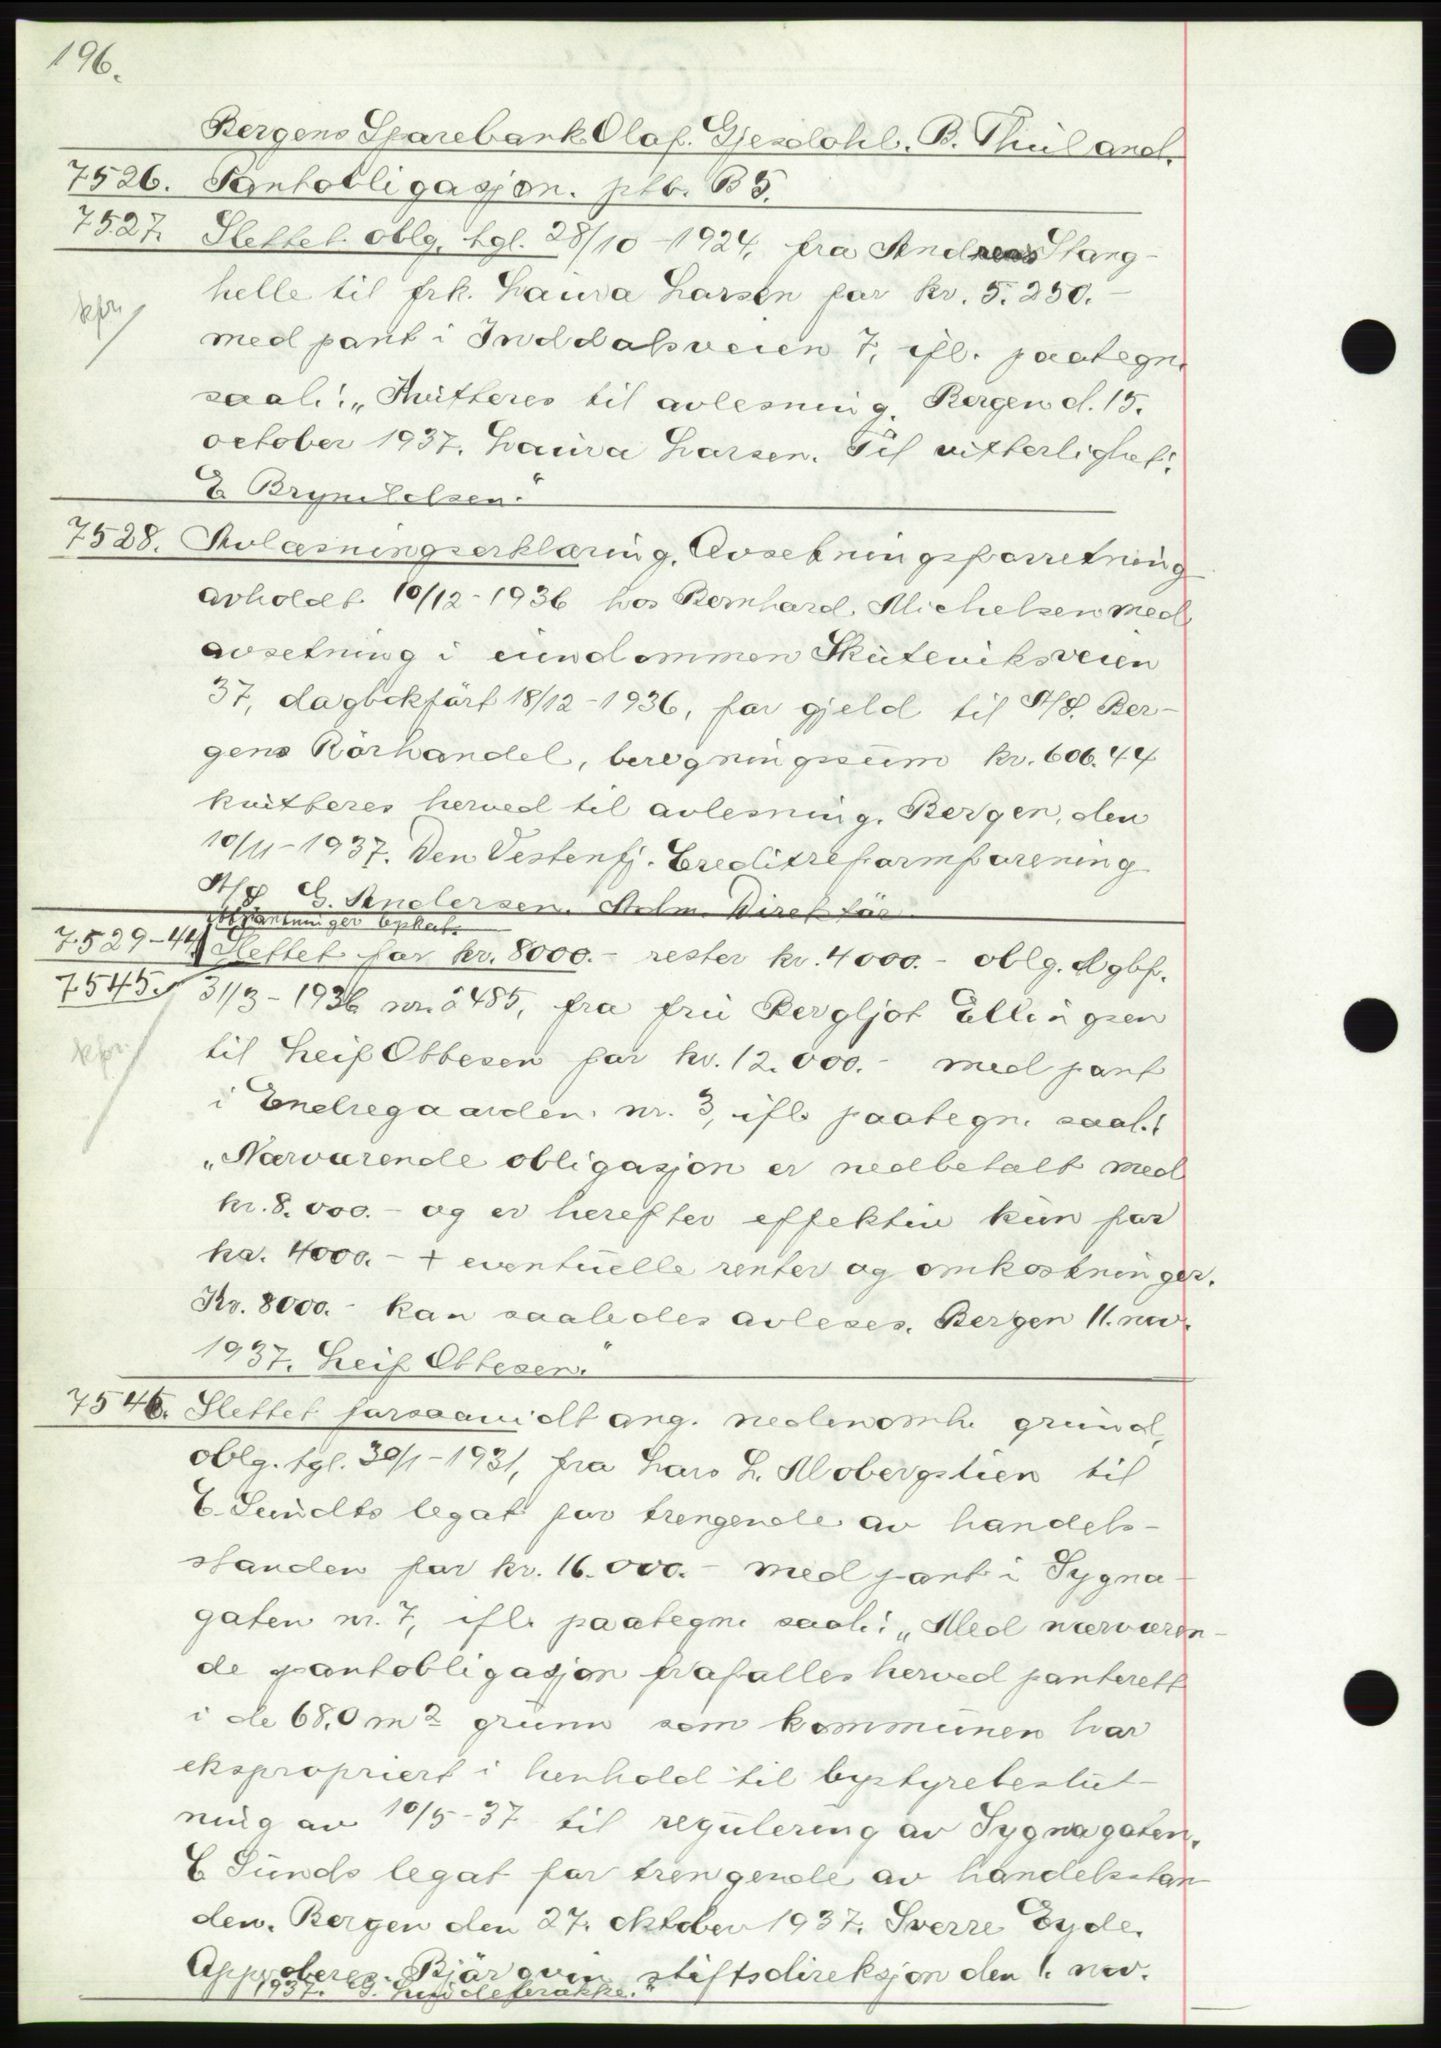 196.
Bergens Sparebank Olaf Gjesdahl. B. Thuland.
7526. Pantobligasjon. ptb. B5.
7527. Slettet oblg. tgl. 28/10-1924, fra Andreas Stang-
helle til frk. Laura Larsen for kr. 5.250.-
kfr.
med pant i Inddalsveien 7, ifl. paategn.
saal.: „Kvitteres til avlesning. Bergen d. 15.
october 1937. Laura Larsen. Til vitterlighet:
E Brynildsen."
7528. Avlæsningserklæring. Avsetningsforretning
avholdt 10/12-1936 hos Bernhard Michelsen med
avsetning i eiendommen Skuteviksveien
37, dagbokført 18/12-1936, for gjeld til A/S. Ber-
gens Rørhandel, beregningssum kr. 606.44
kvitteres herved til avlesning. Bergen, den
10/11-1937. Den Vestenfj. Creditreformforening
A/S G. Andersen. Adm. Direktør
7529-44. Utpantninger bykat.
7545. Slettet for kr. 8000.- rester kr. 4000.- oblg. dgbf.
31/3-1936 nr. 2485, fra fru Bergljot Ellingsen
kfr.
til Leif Obbesen for kr. 12.000.- med pant
i Endregaarden nr. 3, ifl. paategn. saal.:
„Nærværende obligasjon er nedbetalt med
kr. 8.000.- og er herefter effektiv kun for
kr. 4000.- + eventuelle renter og omkostninger.
Kr. 8000.- kan saaledes avleses. Bergen 11. nov.
1937. Leif Obbesen."
7546. Slettet forsaavidt ang. nedenomh. grund,
oblg. tgl. 30/1-1931, fra Lars L. Mobergslien til
E. Sundts legat for trengende av handels-
standen for kr. 16.000.- med pant i Sygna-
gaten nr. 7, ifl. paategn. saal.: „Med nærværen-
de pantobligasjon frafalles herved panterett
i de 68,0 m2 grunn som kommunen har
ekspropriert i henhold til bystyrebeslut-
ning av 10/5-37 til regulering av Sygnagaten.
E Sunds legat for trengende av handelsstan
den. Bergen den 27. oktober 1937. Sverre Eyde.
Approberes. Bjørgvin stiftsdireksjon den 1. nov.
1937.